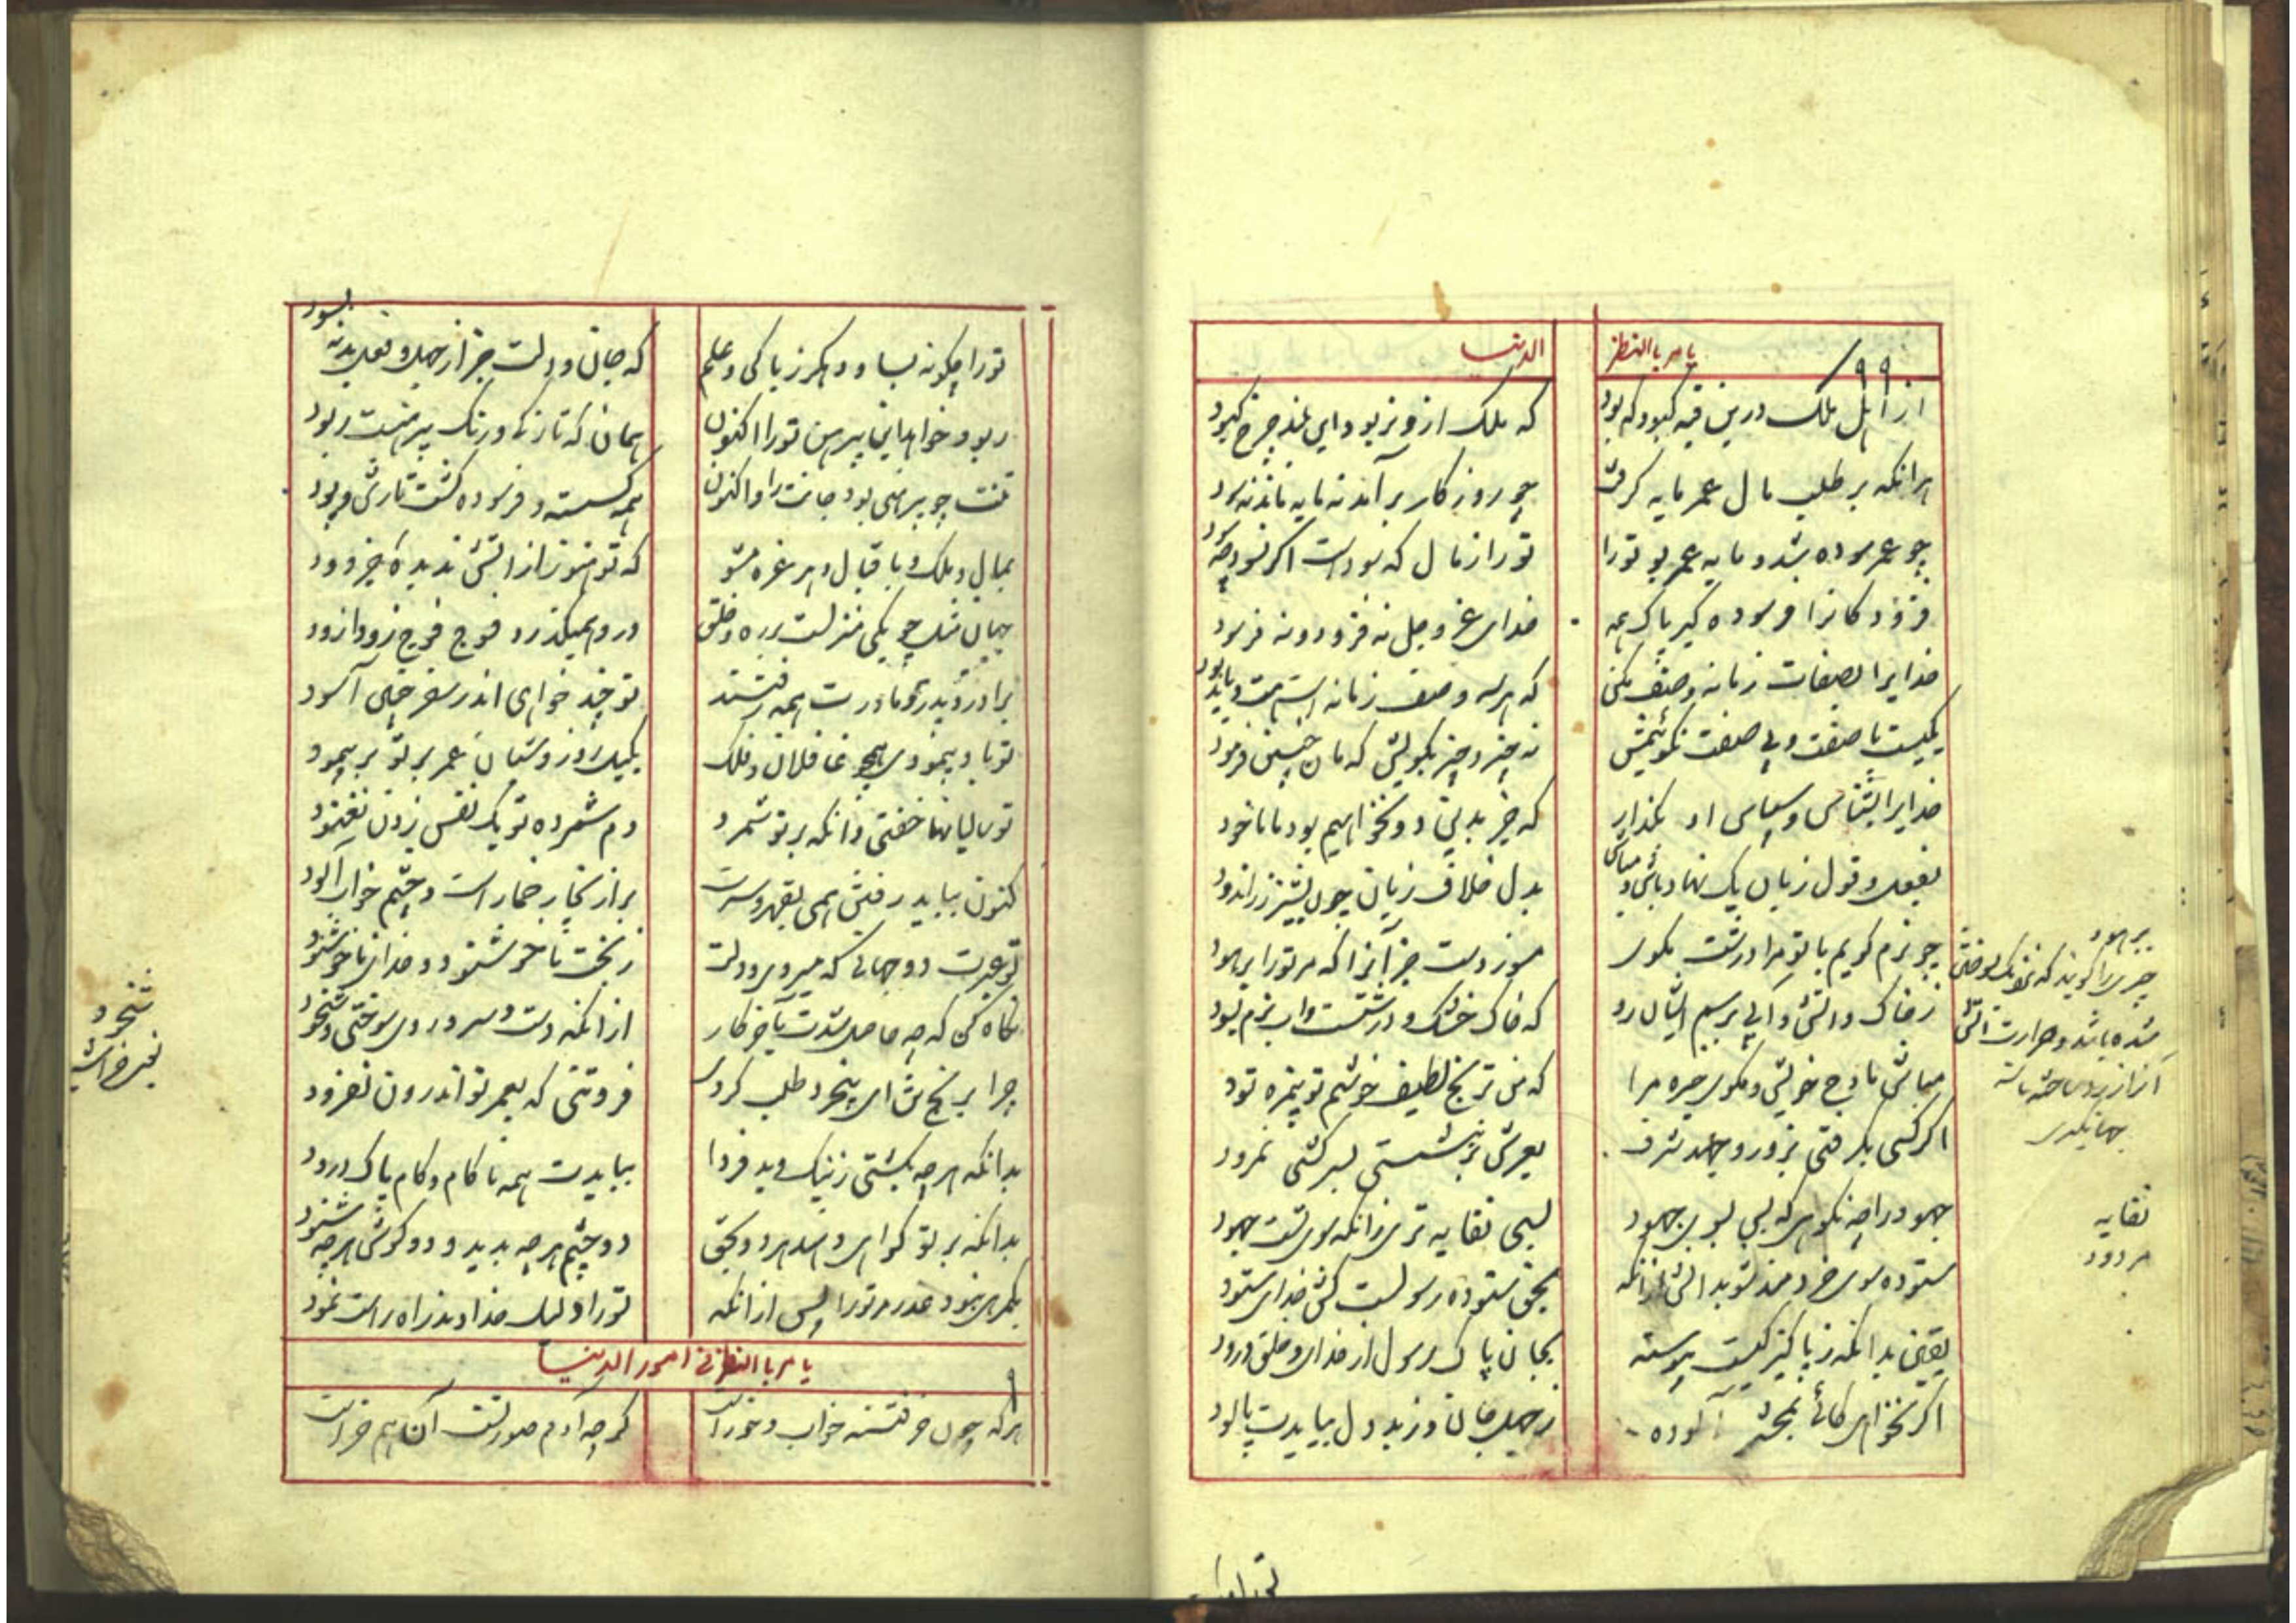 یامر بالنظر
الدنیا
۹۹
از اهل ملک درین قبه کبود که بود
که ملک ازو نربود این بلند چرخ کبود
هرانکه بر طلب مال عمر مایه گرفت
چو روزگار برآمد نه مایه ماند نه سود
چو عمر سوده شد و مایه عمر بود تورا
تورا ز مال که سود است اگر نه سود چه سود
فزودگانرا فرسوده گیر پاک همه
خدای عز و جل نه فزود و نه فرسود
خدایرا بصفات زمانه وصف مکن
که هر سه وصف زمانه است هست و باید و بود
یکیست با صفت و بی صفت نگوئیمش
نه چیز و چیز بگویش که مان چنین فرمود
خدایرا بشناس و سپاس او بگذار
که جز بدین دو نخواهیم بود ما ماخود
بفعل و قول زبان یک نهاد باش و مباش
بدل خلاف زبان چون پشیز زر اندود
چو نرم گویم با تو مرا درشت مگوی
مسوز دست جز آنرا که مر تورا برهود
ز خاک و آتش و آبی برسم ایشان رو
که خاک خشک و درشتست و آب نرم نبود
مباش مادح خویش و مگوی خیره مرا
که من ترنج لطیف خوشم تو بیمزه تود
اگر کسی بگرفتی بزور و جهد شرف
بعرش بر بنشستی بسرکشی نمرود
جهود را چه نکوهی که بس بسوی جهود
بسی نفایه تری زانکه سوی تست جهود
ستوده سوی خردمند شو بدانش ازانکه
بحق ستوده رسولست کش خدای ستود
یقین بدانکه ز پاکیزگیست پیوسته
بجان پاک رسول از خدای و خلق درود
اگر نخواهی کائی بمحشر آلوده
ز جهل جان و ز بد دل ببایدت پالود
برهود
چیزیرا گویند که نزدیک بسوختن
شده باشد و حرارت آتش
آنرا زرد ساخته باشد
جهانگیری
نفایه
مردود
تورا
تورا چگونه بساود هگرز پاکی و علم
که جان و دلت جز از جهل و فعل بد نه بسود
ربود خواهد این پیرهن تورا اکنون
همان که تازگی و رنگ پیرهنت ربود
تنت چو پیرهنی بود جانت را و اکنون
همه گسسته و فرسوده گشت تارش و پود
بمال و ملک و باقبال دهر غره مشو
که تو هنوز از آتش ندیده جز دود
جهان مثل چو یکی منزلست بر ره و خلق
درو همیگذرد فوج فوج زود از زود
برادر و پدر و مادرت همه رفتند
تو چند خواهی اندر سفر چنین آسود
تو باد پیمودی همچو غافلان و فلک
بکیل روز و شبان عمر بر تو بر پیمود
تو سالیانها خفتی و آنکه بر تو شمرد
دم شمرده تو یک نفس زدن نغنود
کنون ببایید رفتن همی بقهر و سرت
پر از بخار خمار است و چشم خواب آلود
تو غبرت دو جهانی که میروی و دلت
ز بخت ناخوشنود و خدای ناخوشنود
نگاه کن که چه حاصل شدت بآخر کار
ازانکه دست و سر و روی سوختی و شخود
چرا برنج تن ای بیخرد طلب کردی
فزونئی که بعمر تو اندرون نفزود
بدانکه هرچه بکشتی ز نیک و بد فردا
ببایدت همه ناکام و کام پاک درود
بدانکه بر تو گواهی دهند هر دو بحق
دو چشم هرچه بدید و دو گوش هرچه شنود
بگمرهی نبود عذر مر تورا پس ازانکه
تورا دلیل خداوند راه راست نمود
شخود
یعنی خراشید
یامر بالنظر فی امور الدنیا
۹
هرکه چون خر فتنه خواب و خور است
گرچه آدم صورتست آن هم خر است